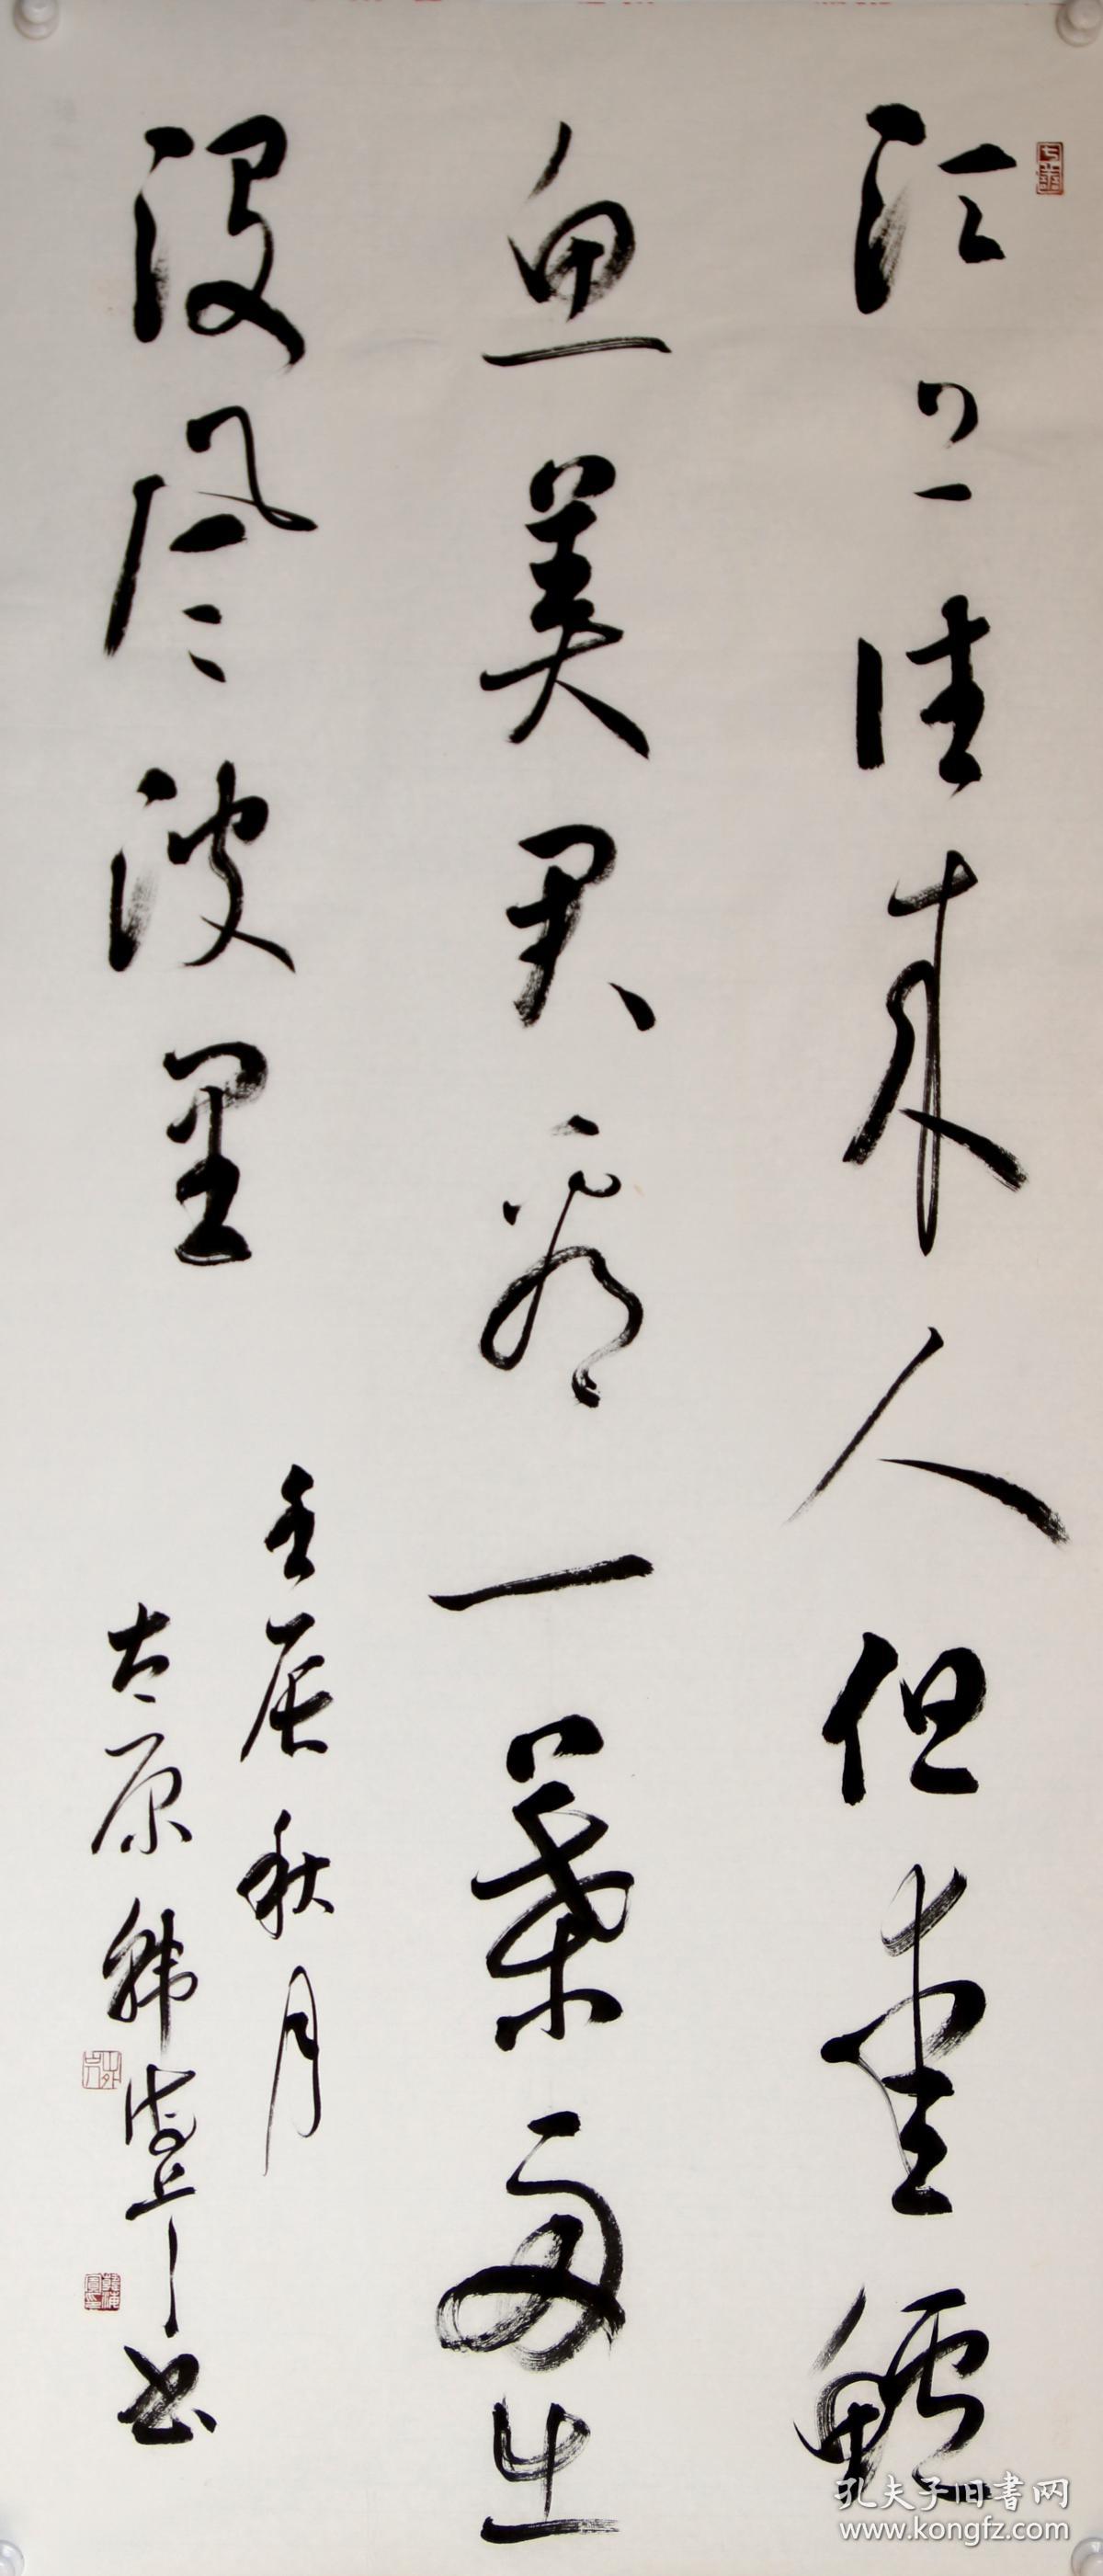 江上往来人但爱鲈
鱼美君看一葉舟出
没风波里
壬辰秋月
太原韩书
孔夫子旧书网
www.kongfz.com